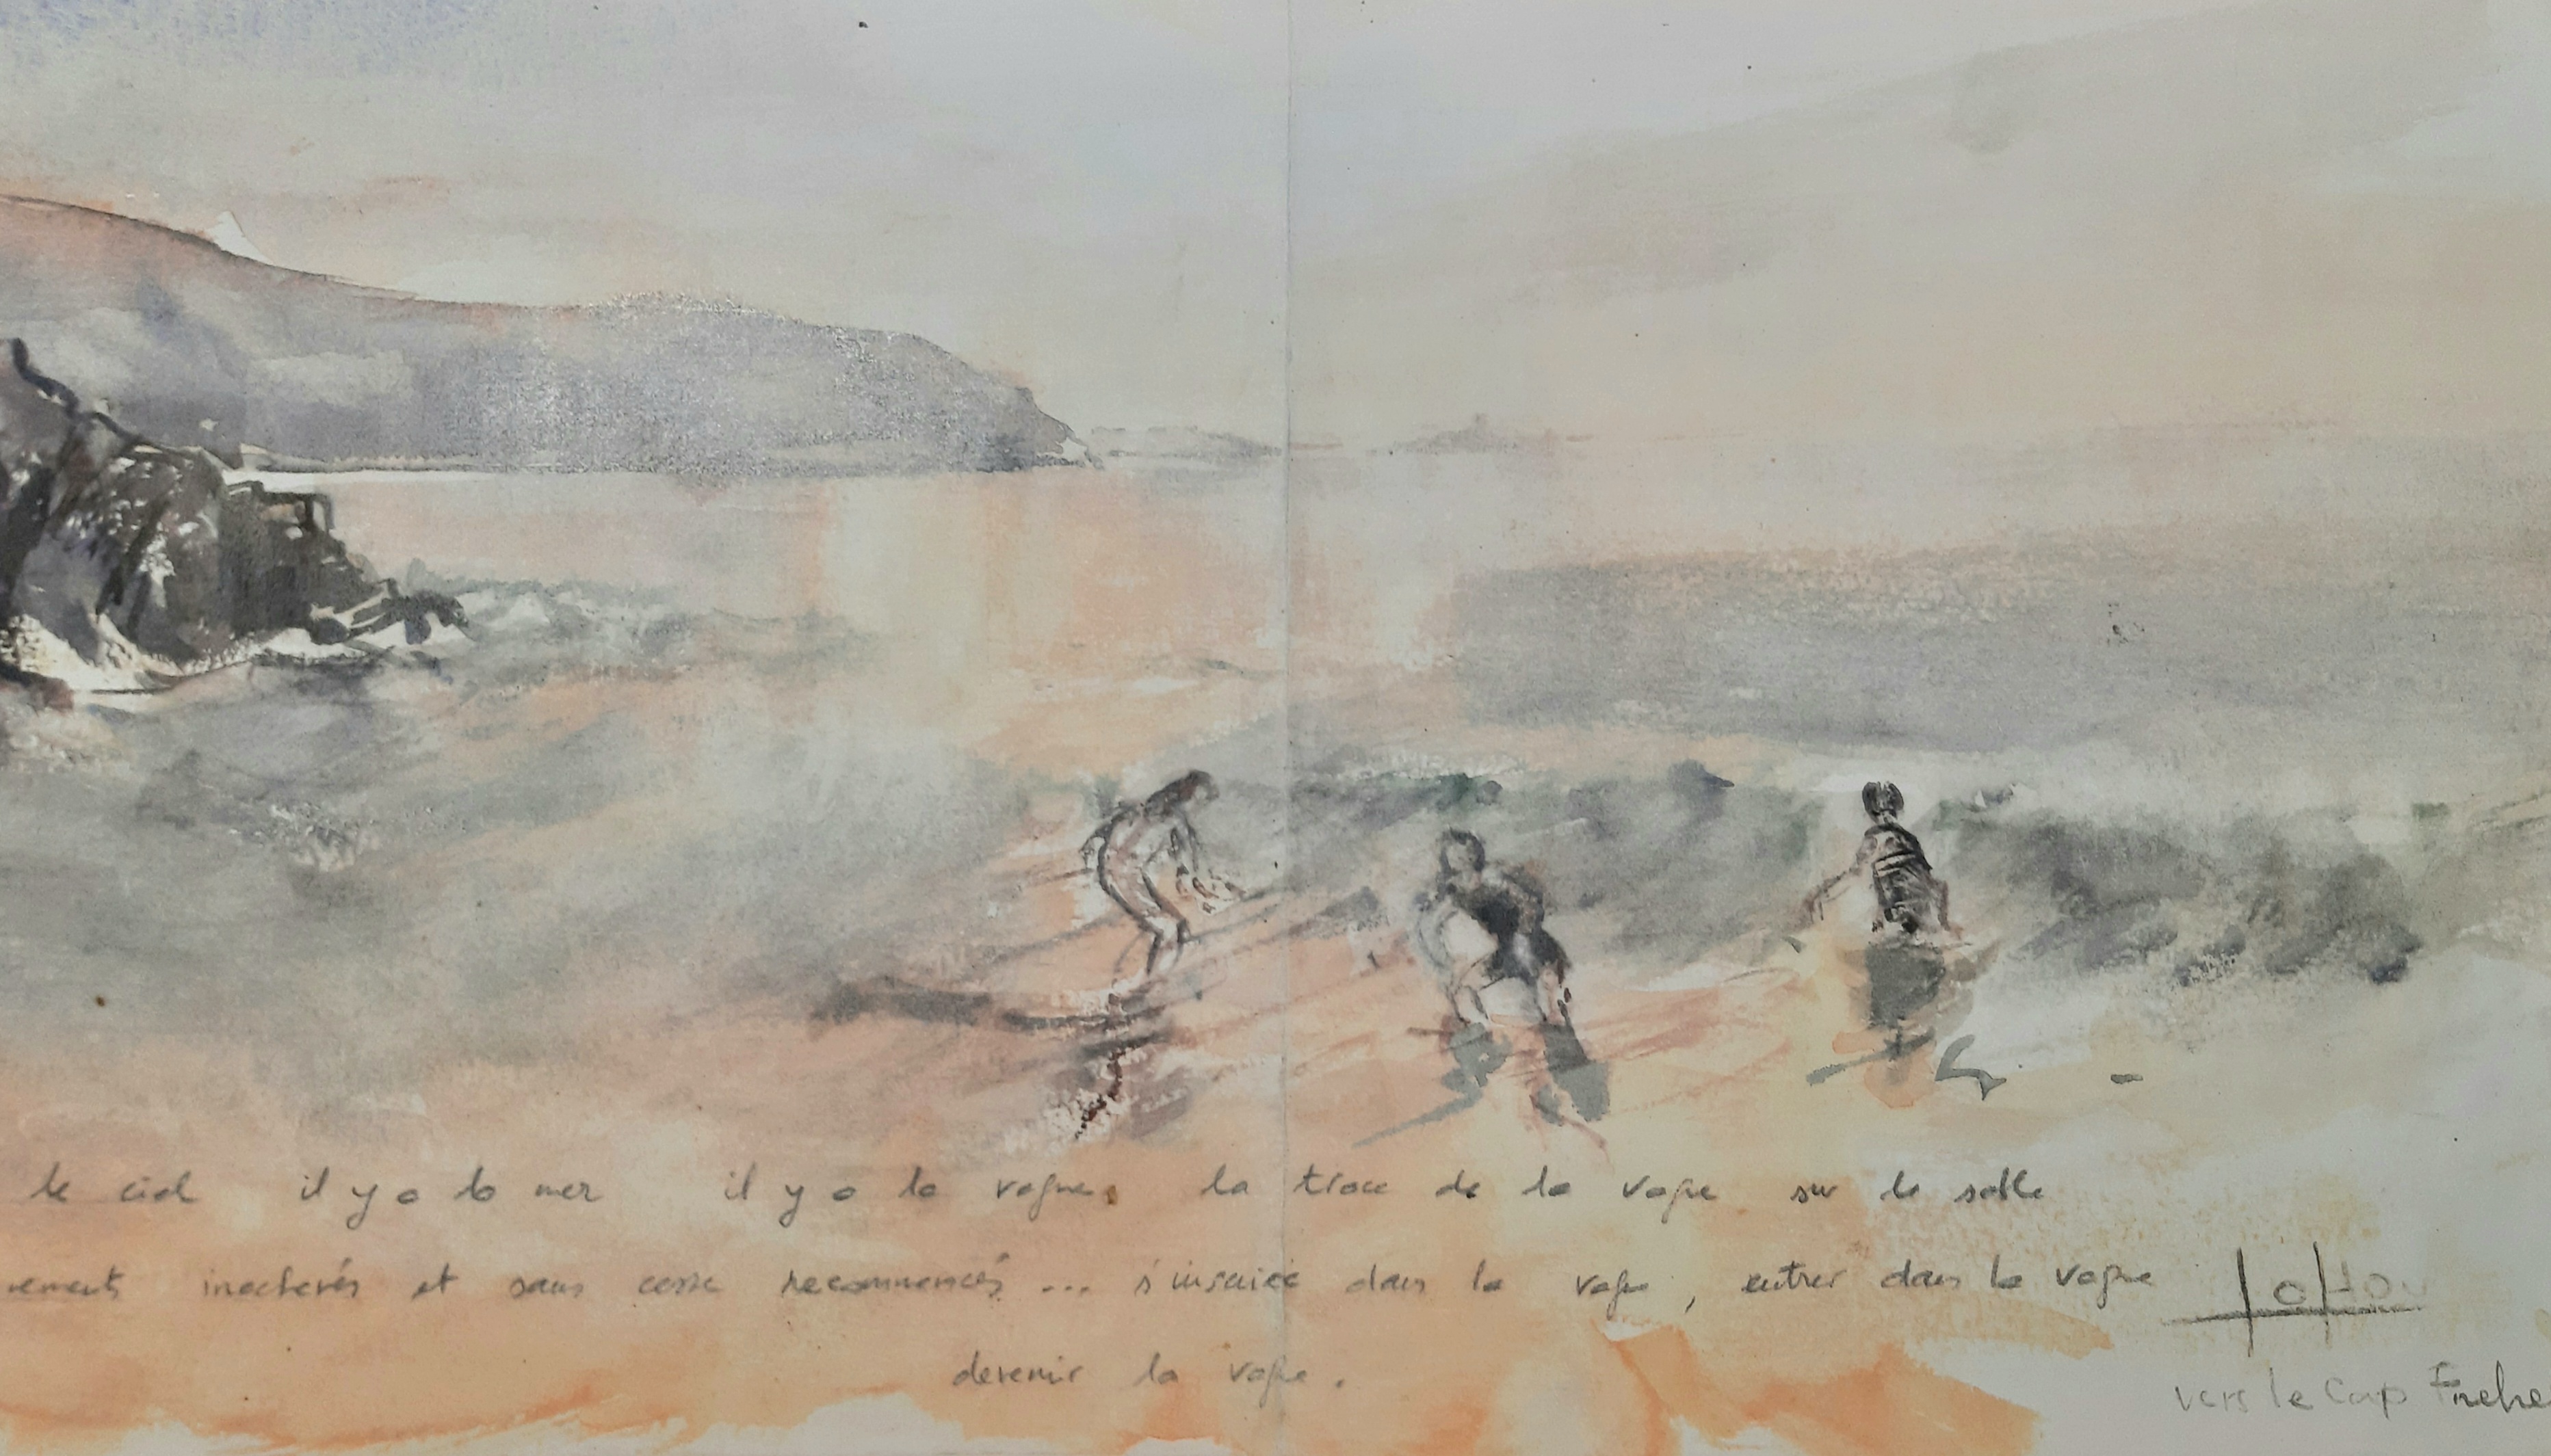 le ciel il y a la mer il y a la vague. la trace de la vague sur le sable
inachevés et sans cesse recommencés ... s'inscrire dans la vague, entrer dans la vague
devenir la vague.
vers le Cap Frehe